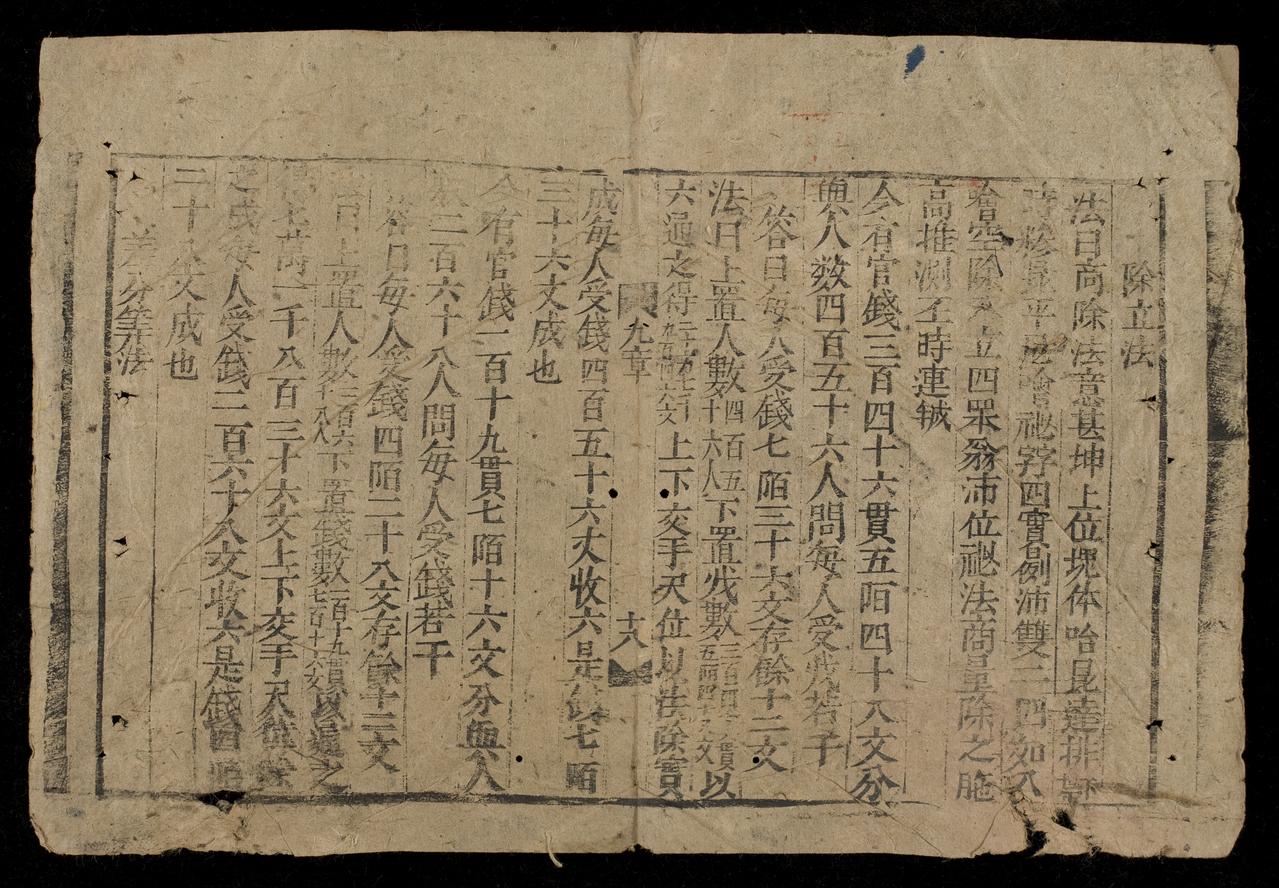 除立法
法曰商除法意甚坤上位塊体哈昆達排
平 會祕字四實易例沛雙二四如八
會空除 立四罘翁沛位祕法商量除之
高推測丕時連
今有官錢三百四十六貫五陌四十八文分
與人數四百五十六人問每人受戋若干
答曰每人受錢七陌三十六文存餘十二文
法曰上置人數四百五十六人下置戋數三百四十六貫五陌四十八文以
六通之得二十 九百四十六文上下交手尺位以法除實
九章
十八
成每人受錢四百五十六文收六是錢七陌
三十六文成也
今有官錢一百十九貫七陌十六文分與人
數二百六十八人問每人受錢若干
答曰每人受錢四陌二十八文存餘十二文
法曰上置人數二百六十八人下置錢數一百十九貫七百十六文以通之
得七萬一千八百三十六文上下交手尺位除
之成每人受錢二百六十八文收六是錢四陌
二十八文成也
差分等法